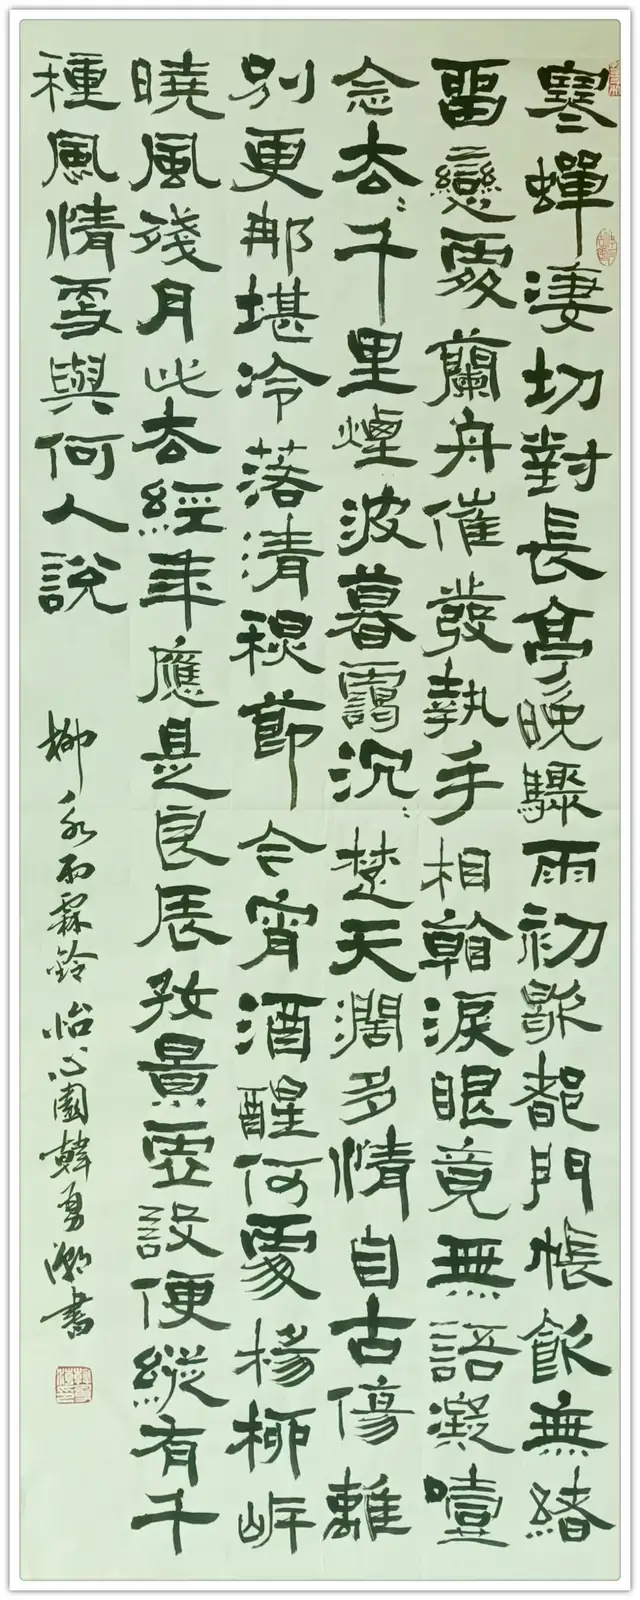 寒蟬淒切對長亭晚驟雨初歇都門帳飲無緒
留戀處蘭舟催發執手相看淚眼竟無語凝噎
念去〻千里煙波暮靄沉〻楚天濶多情自古傷離
別更那堪冷落清秋節今宵酒醒何處楊柳岸
曉風殘月此去經年應是良辰好景虛設便縱有千
種風情更與何人說
柳永雨霖鈴怡心園韓勇書